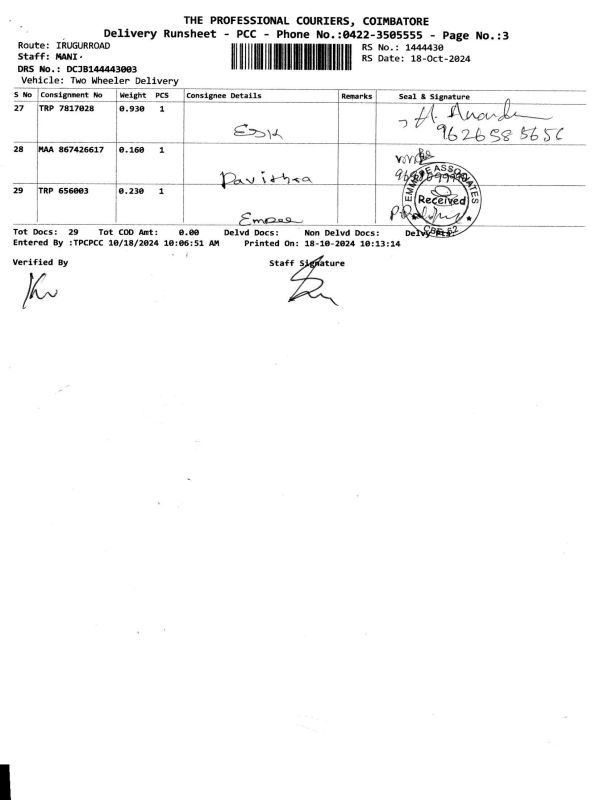 THE PROFESSIONAL COURIERS, COIMBATORE
Delivery Runsheet - PCC - Phone No.:0422-3505555 - Page No.:3
Route: IRUGURROAD RS No.: 1444430
Staff: MANI· RS Date: 18-Oct-2024
DRS No.: DCJB144443003
Vehicle: Two Wheeler Delivery
S No Consignment No Weight PCS Consignee Details Remarks Seal & Signature
27 TRP 7817028 0.930 1
28 MAA 867426617 0.160 1
Pavithra
29 TRP 656003 0.230 1 Received
Empee
Tot Docs: 29 Tot COD Amt: 0.00 Delvd Docs: Non Delvd Docs:
Entered By :TPCPCC 10/18/2024 10:06:51 AM Printed On: 18-10-2024 10:13:14
Verified By Staff Signature